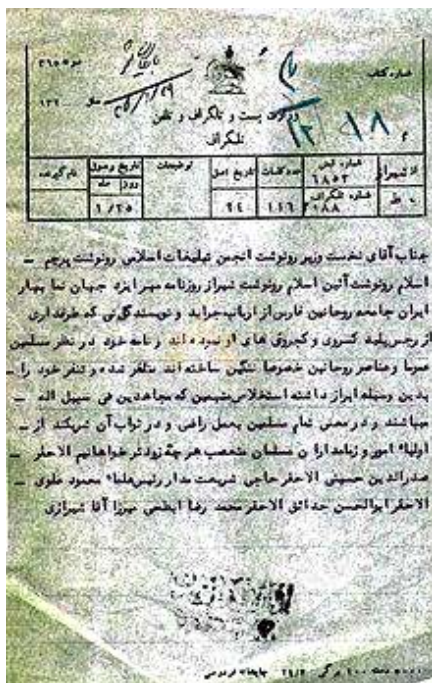 شماره کتاب
وزارت پست و تلگراف و تلفن
تلگراف
از شیراز
شماره قبض ۶۸۵۳
عدد کلمات
تاریخ اصل
توضیحات
تاریخ وصول
روز ماه
نام گیرنده
شماره تلگراف ۲۰۸۸
۱۱۶
۲۴
۱/۲۵
جناب آقای نخست وزیر رونوشت انجمن تبلیغات اسلامی رونوشت پرچم –
اسلام رونوشت آئین اسلام رونوشت شیراز روزنامه مهر ایزد جهان نما بهار
ایران جامعه روحانین فارس از ارباب جراید و نویسندگانی که طرفداری
از رجس پلید کسروی و کجروی های او نموده اند و نامه خود در نظر مسلمین
عموما و عناصر روحانین خصوصا ننگین ساخته اند متنفر شده و تنفر خود را –
بدین وسیله ابراز داشته استخلاص متهمین که مجاهدین فی سبیل اله –
میباشند و در معنی تمام مسلمین بعمل راضی و در ثواب آن شریکند از –
اولیاء امور و زمامداران مسلمان متعصب هر چه زودتر خواهانیم الاحقر –
صدرالدین حسینی الاحقر حاجی شریعت مدار رئیس علماء محمود علوی –
الاحقر ابوالحسن حدائق الاحقر محمد رضا ابطحی میرزا آقا شیرازی
دسته ۱۰۰ برگی ۲۴/۲ چاپخانه فردوسی